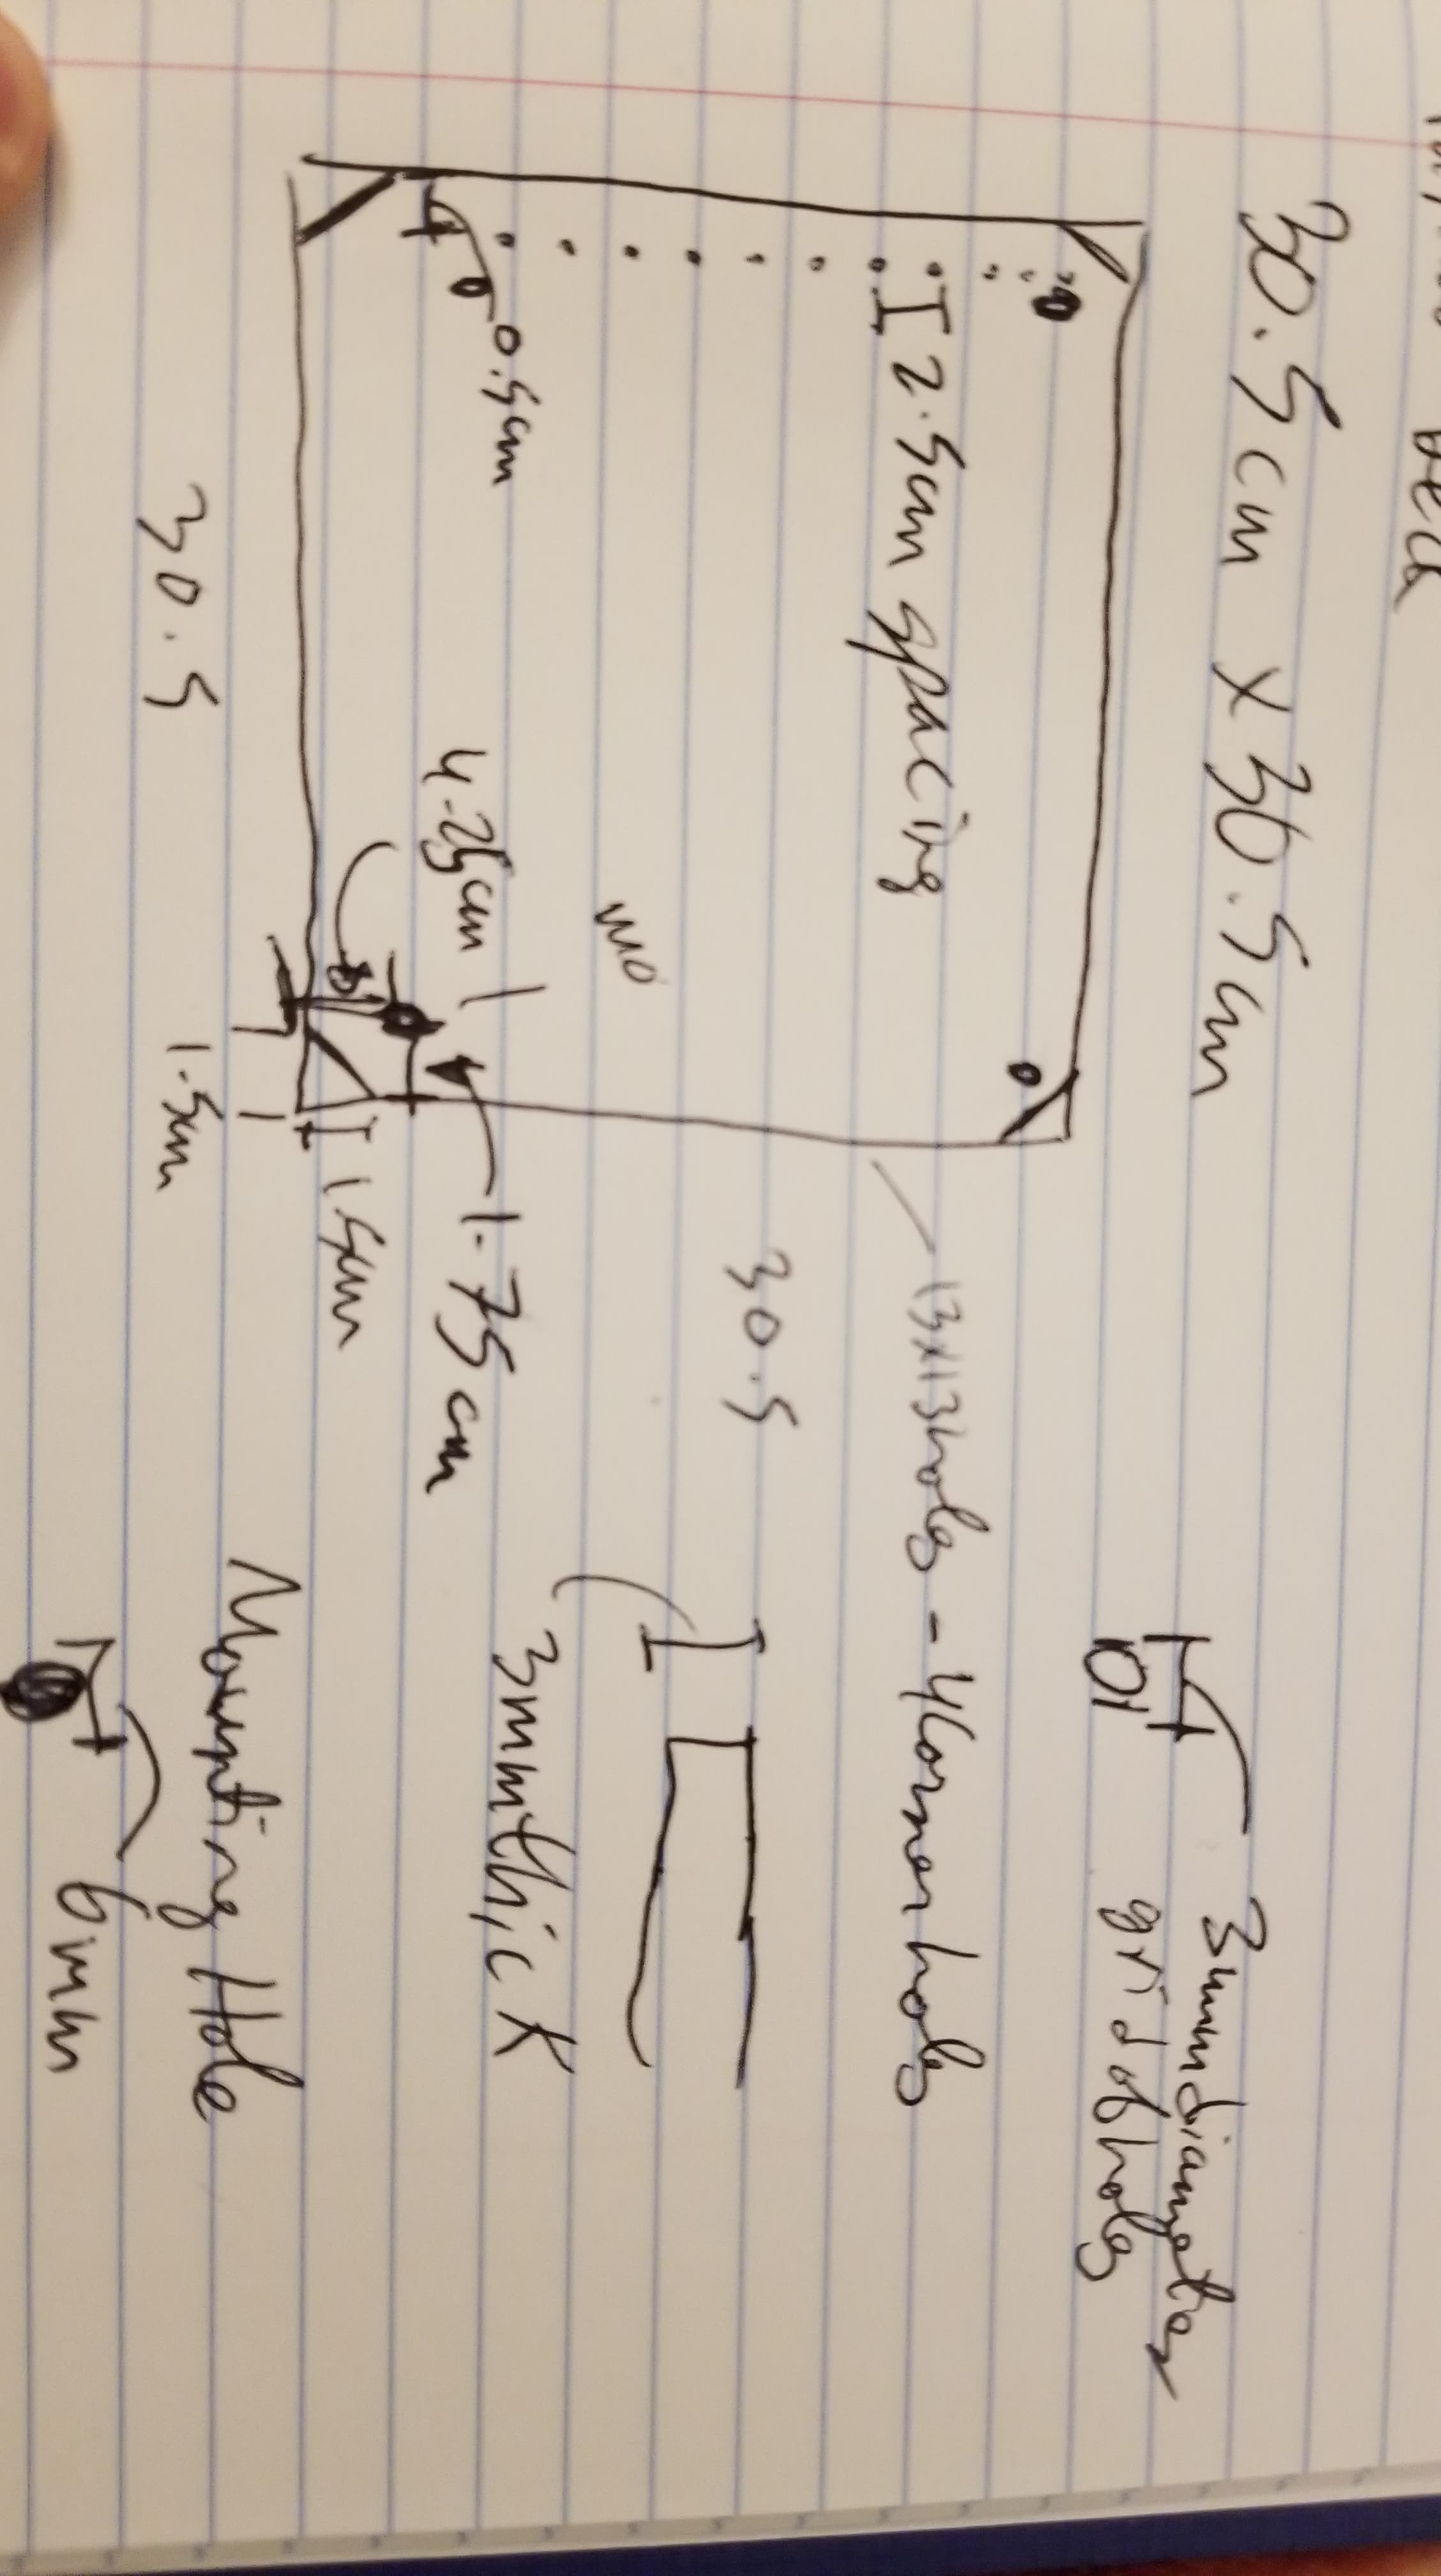 Deck
30.5cm x 30.5cm
3mm diameter
grid of holes
I 2.5cm spacing
13x13 holes - 4 Corner holes
30.5
mo
0.5cm
4.25cm
1.75 cm
3mm thick
1.5cm
30.5
1.5cm
Mounting Hole
6mm